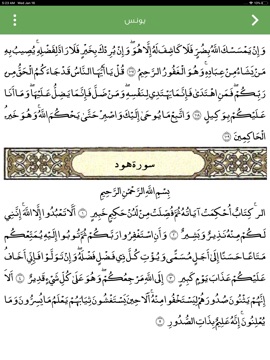 9:23 AM Wed Jan 18
يونس
وَإِن يَمْسَسْكَ ٱللَّهُ بِضُرٍّ فَلَا كَاشِفَ لَهُۥٓ إِلَّا هُوَ ۖ وَإِن يُرِدْكَ بِخَيْرٍ فَلَا رَآدَّ لِفَضْلِهِۦ ۚ يُصِيبُ بِهِۦ
مَن يَشَآءُ مِنْ عِبَادِهِۦ ۚ وَهُوَ ٱلْغَفُورُ ٱلرَّحِيمُ ۝ قُلْ يَٰٓأَيُّهَا ٱلنَّاسُ قَدْ جَآءَكُمُ ٱلْحَقُّ مِن
رَّبِّكُمْ ۖ فَمَنِ ٱهْتَدَىٰ فَإِنَّمَا يَهْتَدِى لِنَفْسِهِۦ ۖ وَمَن ضَلَّ فَإِنَّمَا يَضِلُّ عَلَيْهَا ۖ وَمَآ أَنَا۠
عَلَيْكُم بِوَكِيلٍ ۝ وَٱتَّبِعْ مَا يُوحَىٰٓ إِلَيْكَ وَٱصْبِرْ حَتَّىٰ يَحْكُمَ ٱللَّهُ ۚ وَهُوَ خَيْرُ
ٱلْحَٰكِمِينَ ۝
سورة هود
بِسْمِ ٱللَّهِ ٱلرَّحْمَٰنِ ٱلرَّحِيمِ
الٓر ۚ كِتَٰبٌ أُحْكِمَتْ ءَايَٰتُهُۥ ثُمَّ فُصِّلَتْ مِن لَّدُنْ حَكِيمٍ خَبِيرٍ ۝ أَلَّا تَعْبُدُوٓا۟ إِلَّا ٱللَّهَ ۚ إِنَّنِى
لَكُم مِّنْهُ نَذِيرٌ وَبَشِيرٌ ۝ وَأَنِ ٱسْتَغْفِرُوا۟ رَبَّكُمْ ثُمَّ تُوبُوٓا۟ إِلَيْهِ يُمَتِّعْكُم
مَّتَٰعًا حَسَنًا إِلَىٰٓ أَجَلٍ مُّسَمًّى وَيُؤْتِ كُلَّ ذِى فَضْلٍ فَضْلَهُۥ ۖ وَإِن تَوَلَّوْا۟ فَإِنِّىٓ أَخَافُ
عَلَيْكُمْ عَذَابَ يَوْمٍ كَبِيرٍ ۝ إِلَى ٱللَّهِ مَرْجِعُكُمْ ۖ وَهُوَ عَلَىٰ كُلِّ شَىْءٍ قَدِيرٌ ۝ أَلَآ
إِنَّهُمْ يَثْنُونَ صُدُورَهُمْ لِيَسْتَخْفُوا۟ مِنْهُ ۚ أَلَا حِينَ يَسْتَغْشُونَ ثِيَابَهُمْ يَعْلَمُ مَا يُسِرُّونَ وَمَا
يُعْلِنُونَ ۚ إِنَّهُۥ عَلِيمٌۢ بِذَاتِ ٱلصُّدُورِ ۝